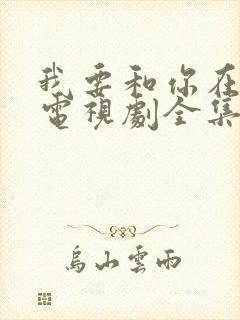 我要和你在
電視劇全集
烏山雲雨